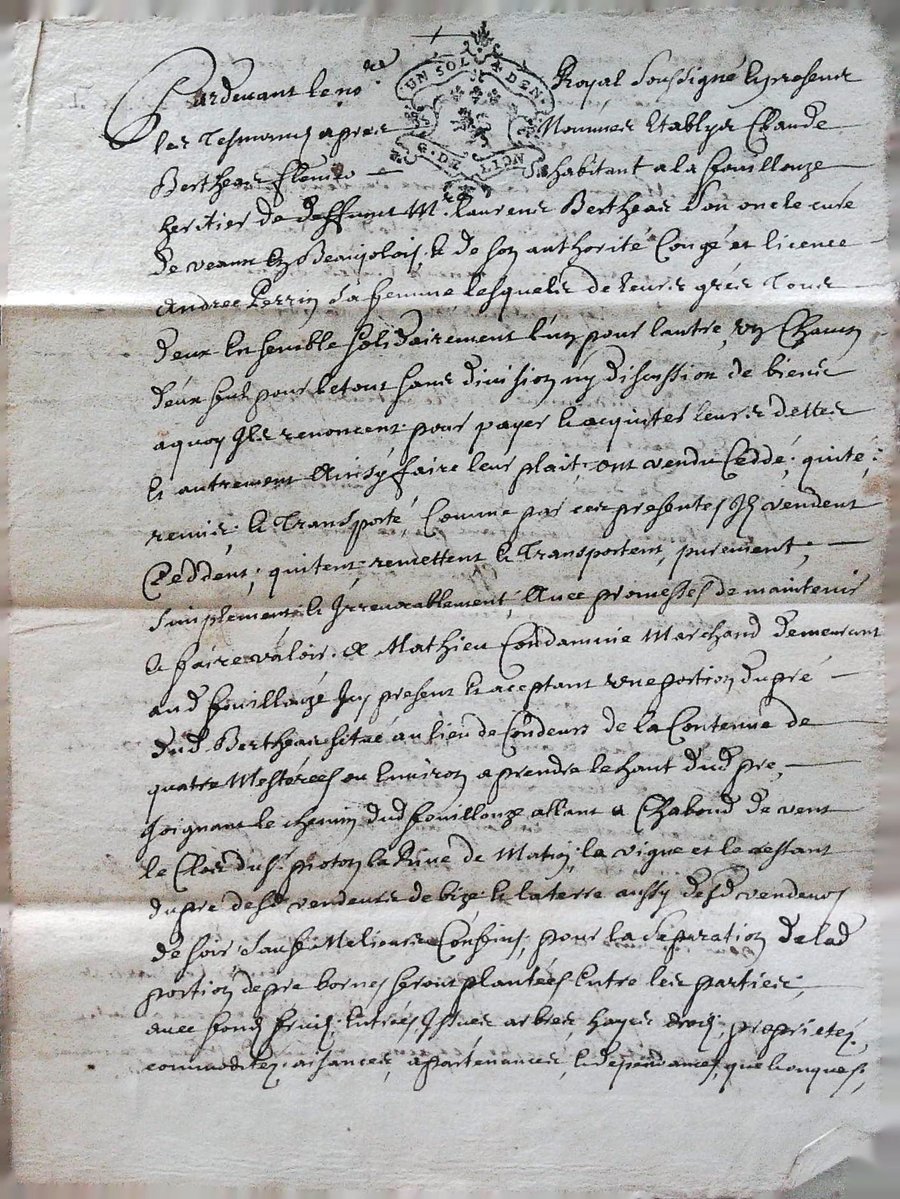 UN SOL 4 DEN
G. DE LION
Pardevant le no.re Royal soussigné et presens
les Tesmoins apres Nommes Etably Claude
Berthear habitant a la fouillouze
heritier de deffunt Mr. laurens Berthear son oncle curé
de veaux En Beaujolois, & de son authorité Congé et licence
Andree Perrin sa femme lesquels de leurs grés Tous
deux Ensemble solidairement l'un pour lautre, un Chacun
d'eux seul pour le tout sans division ny discussion de biens
aquoy Ils renoncent pour payer & acquiter leurs dettes
Et autrement Ainsy faire leur plait, ont vendu Ceddé, quité,
remis, & Transporté, Comme par ces presentes Ils vendent
Ceddent, quitent, remettent & Transportent, purement,
simplement & Irrevocablement, Avec promesses de maintenir
& faire valoir. A Mathieu Condamine Marchand demeurant
aud fouillouze Icy present et acceptant une portion du pré
dud. Berthear situé au lieu de Condeurs de la Contenue de
quatre Mesterées ou Environ a prendre le haut dud pre,
Joignant le chemin dud fouillouze allant a Chabond de vent
le Clos du sr. proton la Rine de Matin, la vigne et le restant
du pre desd vendeurs de bize & la terre aussy desd vendeurs
de soir sauf Melieurs Confins, pour la separation de lad
portion de pre bornes seront plantées Entre les parties,
avec fond, fruits, Entrées, Issues arbres, hayes droits, proprietés,
commodités, aisances, apartenances, & dependances, quelconques,